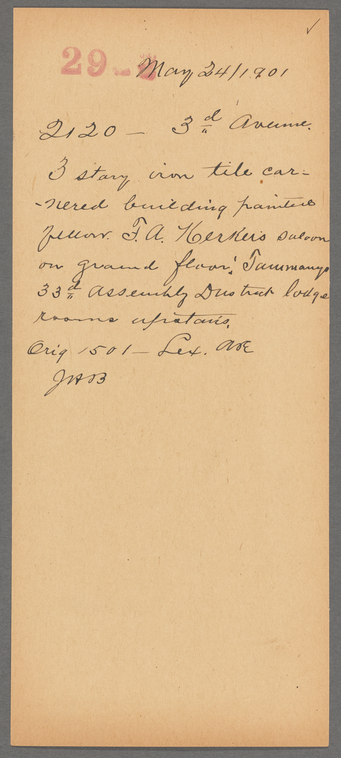 29-2 May 24/1901
2120 – 3d Avenue.
3 story iron tile car-
-nered building painted
yellow. F. A. Kerker's saloon
on ground floor. Tammanys
33d Assembly District lodge
rooms upstairs.
Orig 1501 – Lex. Ave
JAB